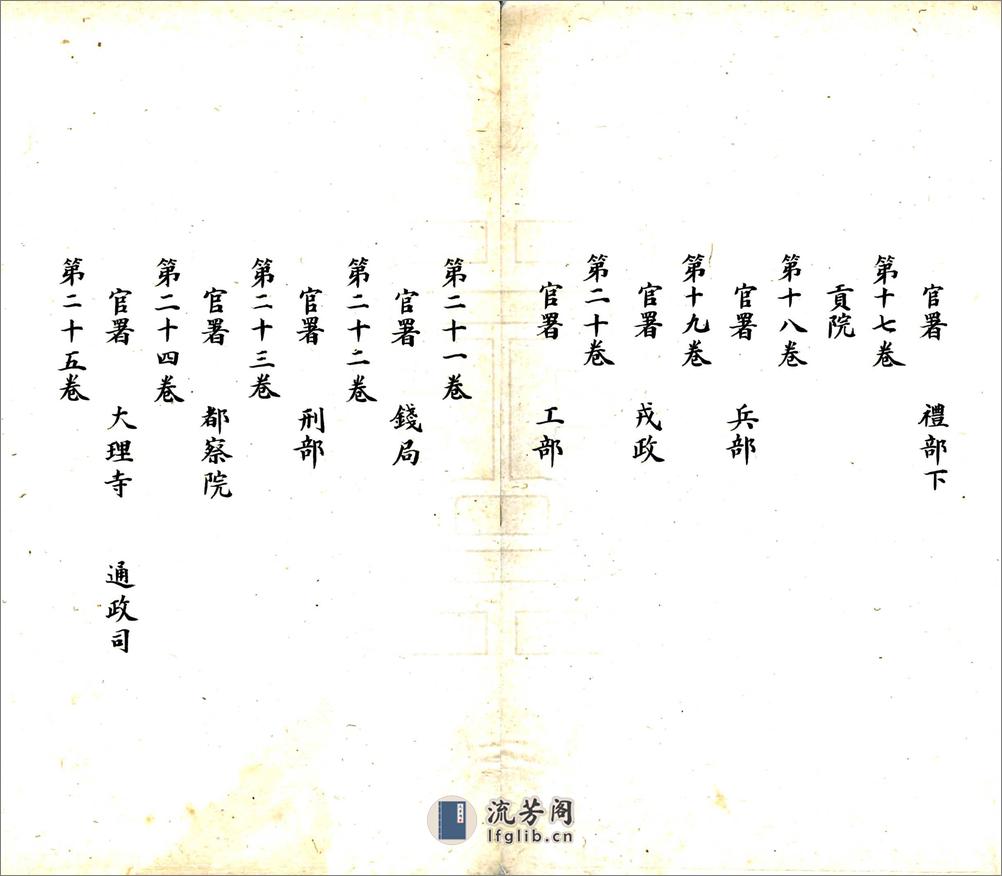 官署 禮部下
第十七卷
貢院
第十八卷
官署 兵部
第十九卷
官署 戎政
第二十卷
官署 工部
第二十一卷
官署 錢局
第二十二卷
官署 刑部
第二十三卷
官署 都察院
第二十四卷
官署 大理寺 通政司
第二十五卷
流芳阁
lfglib.cn